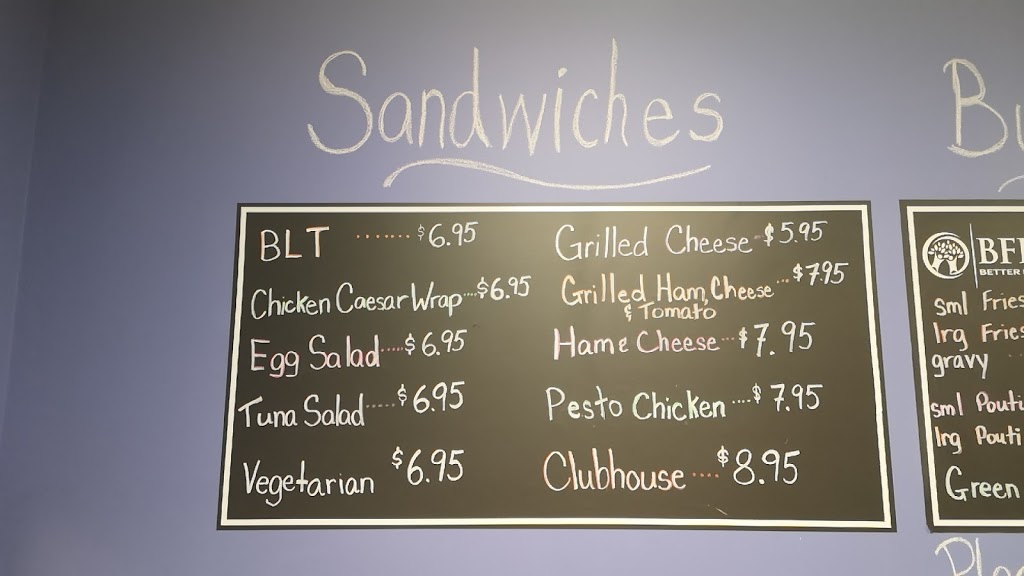 Sandwiches
BLT ....... $6.95
Chicken Caesar Wrap....$6.95
Egg Salad.....$6.95
Tuna Salad.....$6.95
Vegetarian $6.95
Grilled Cheese..$5.95
Grilled Ham, Cheese...$7.95
& Tomato
Ham & Cheese...$7.95
Pesto Chicken....$7.95
Clubhouse....$8.95
BETTER
sml Fries
lrg Fries
gravy
sml
lrg
Green